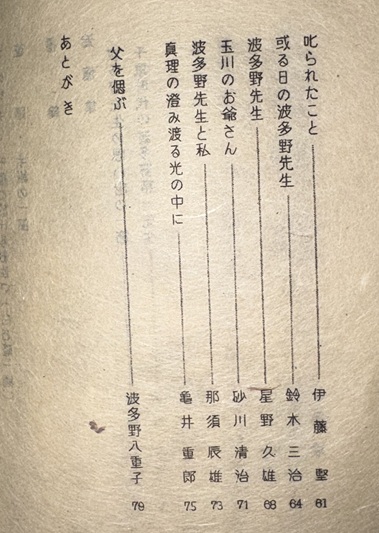 叱られたこと――伊藤堅 61
或る日の波多野先生――鈴木三治 64
波多野先生――星野久雄 68
玉川のお爺さん――砂川清治 71
波多野先生と私――那須辰雄 73
真理の澄み渡る光の中に――亀井重郎 75
父を偲ぶ――波多野八重子 78
あとがき